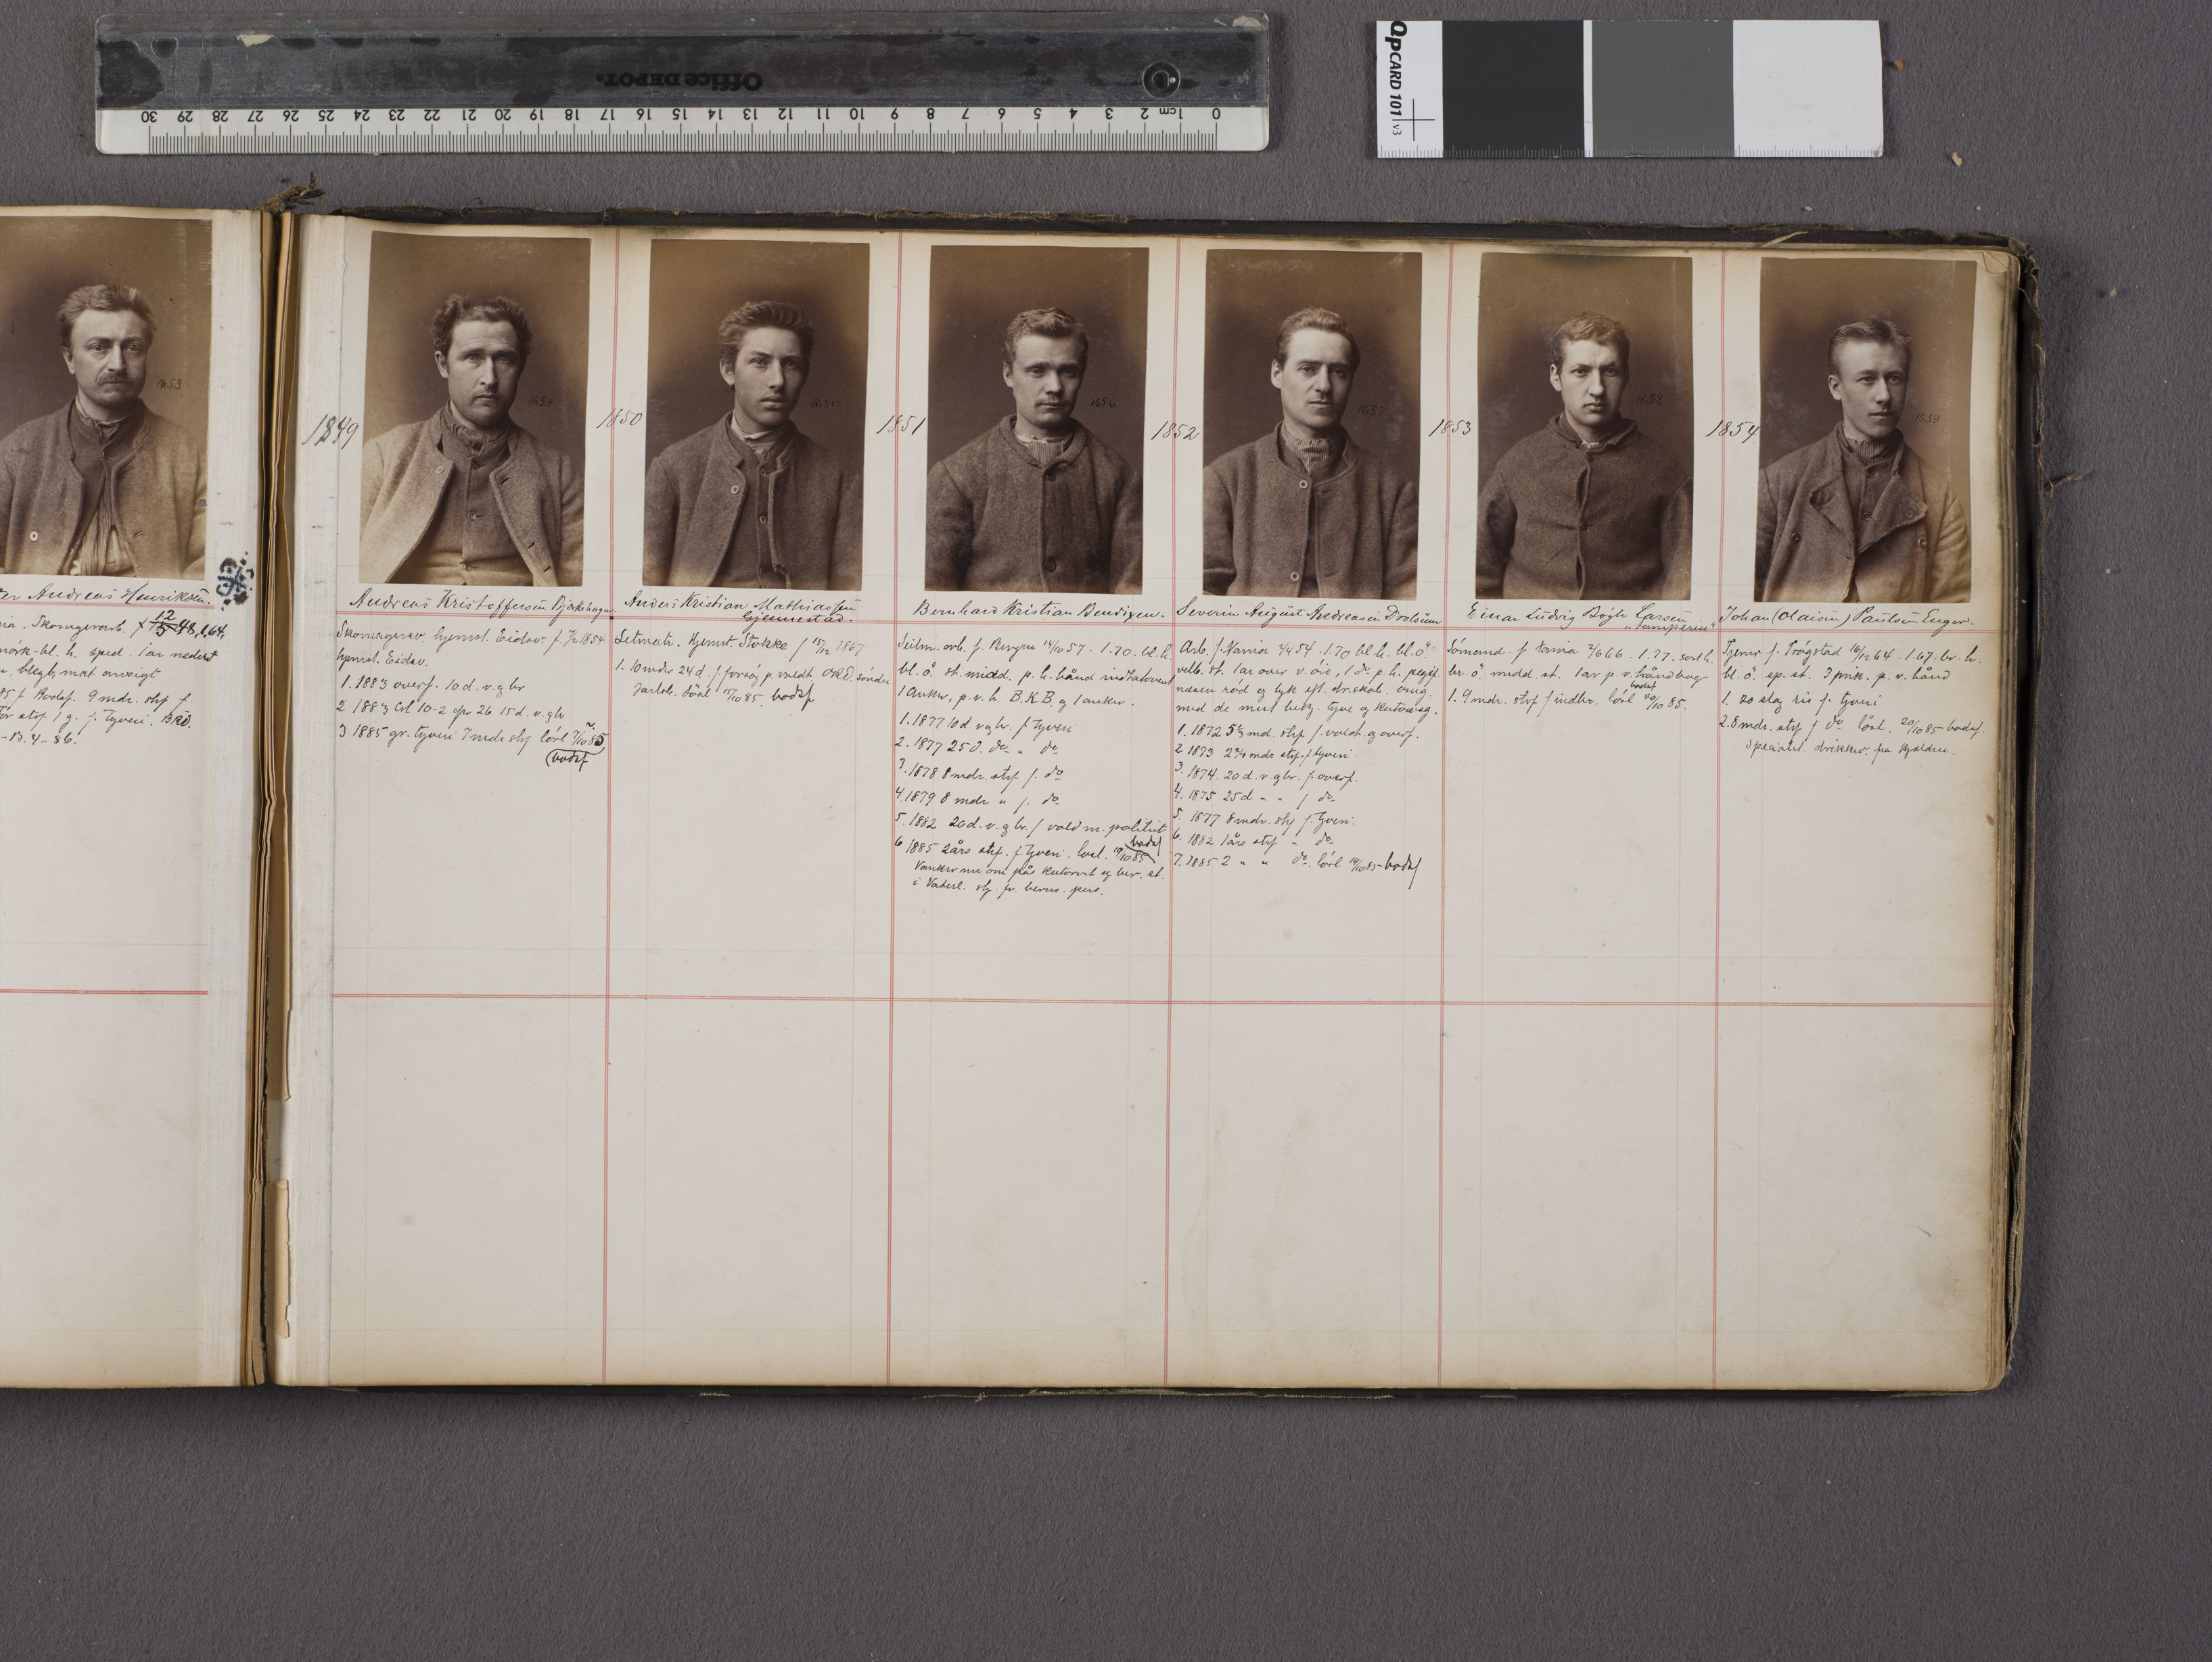 Office DEPOT.
0 1 cm 2 3 4 5 6 7 8 9 10 11 12 13 14 15 16 17 18 19 20 21 22 23 24 25 26 27 28 29 30
QPCARD 101 v3
1653
Andreas Henriksen.
Skomagerarb. f 12 48, 1,64.
mörk-bl. h. sped. 1 ar nederst
9 mdr. stf f.
1 g. f. Tyveri. BKD.
-13.4-86.
1849
1654
Andreas Kristoffersen Bjørkehagen.
Skomagersv. hjemst. Eidsv. f 7/2 1854
hjemst. Eidsv.
1. 1883 overf. 10 d. v. g br
2 1883 Crl 10-2 cfr 26 15 d. v. g br
3 1885 gr. tyveri 7 mdr stf lösl 7/10 85
bodsf
1850
1655
Anders Kristian Mathiassen
Gjennestad.
Letmatr. Hjemst. Stokke f 15/12 1867
1. 10 mdr 24 d. f. forsög p. voldt. Okld. söndre
Jarlsb. lösl 15/10 85. bodsf
1851
1656
Bernhard Kristian Bendixen.
Seilm. arb. f. Bergen 14/10 57. 1.70. bl. h.
bl. ö. st. midd. p. h. hånd
1 anker, p. v. h. B.K.B. g 1 anker.
1. 1877 10 d v. g br. f Tyveri
2. 1877 25 d. do " do
3. 1878 8 mdr. stf f. do
4. 1879 8 mdr " f. do
5. 1882 20 d. v. g br. f vold m. politiet
6 1885 2 års stf. f. Tyveri. lösl. 19/10 85 bodsf
Vanker nu om på Kutorvet og ber. st.
i Vaterl. stj. fr. berus. pers.
1852
1657
Severin August Andreasen Dvolsum
Arb. f. Xania 4/4 54. 1.70 bl. h. bl. ö
velb. st. 1 ar over v. öie, 1 do p. h. pegef.
nesen röd og tyk
med de mest tyve og Kutorvsg.
1. 1872 5 2/3 md. stf f. voldt. g overf.
2 1873 2 mdr stf. f tyveri
3. 1874. 20 d. v. g br. f. overf.
4. 1875 25 d " " f do
5. 1877 8 mdr. stf f. tyveri.
6. 1882 1 års stf " do
7. 1885 2 " " do. lösl 19/10 85 - bodsf
1853
1658
Einar Ludvig Bögh Larsen
"Lamperen"
Sömand. f Xania 2/6 66. 1.77. sort h.
br. ö. midd. st. 1 ar p v. håndbag
bodsf
1. 9 mdr. stf f indbr. lösl 20/10 85.
1854
1659
Johan (Olaisen) Paulsen Enger.
Tjener f. Trögstad 16/12 64. 1.67. br. h.
bl. ö. sp. st. 3 prik. p. v. hånd
1. 20 slag ris f. tyveri
2. 8 mdr. stf f do lösl. 20/10 85 - bodsf.
Specialit. drikker fra kjeldere.